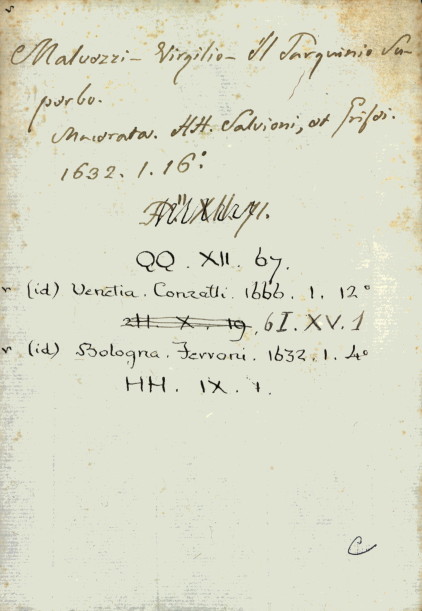 Malvezzi - Virgilio - Il Tarquinio Su-
perbo.
Macerata. HH. Salvioni, et Grisei.
1632. 1. 16°.
QQ. XII. 67.
v (id) Venetia. Conzatti. 1666. 1. 12°
2H. X. 19. 6I. XV. 1
v (id) Bologna. Ferroni. 1632. 1. 4°
HH. IX. 1.
C